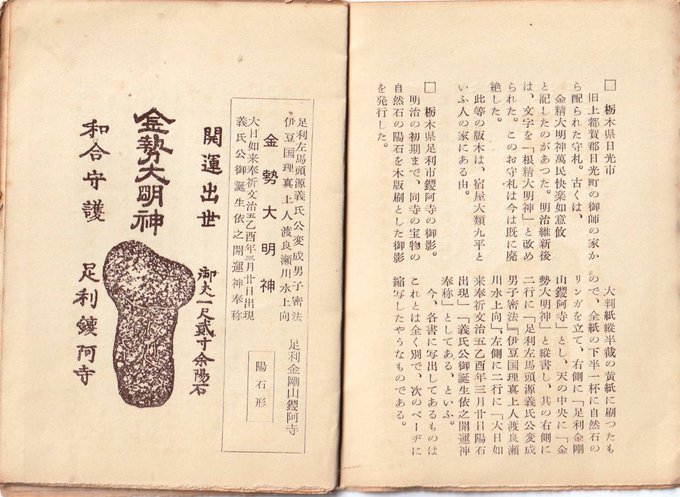 □ 栃木県日光市
旧上都賀郡日光町の御師の家か
ら配られた守札。古くは、
金精大明神萬民快楽如意攸
と記したのがあつた。明治維新後
は、文字を「根精大明神」と改め
られた。このお守札は今は既に廃
絶した。
此等の版木は、宿屋大類九平と
いふ人の家にある由。
□ 栃木県足利市鑁阿寺の御影。
明治の初期まで、同寺の宝物の
自然石の陽石を木版刷とした御影
を発行した。
大判紙縦半截の黄紙に刷つたも
ので、全紙の下半一杯に自然石の
リンガを立て、右側に「足利金剛
山鑁阿寺」とし、天の中央に「金
勢大明神」と縦書し、其の右側に
二行に「足利左馬頭源義氏公変成
男子密法『伊豆国理真上人渡良瀬
川水上向」、左側に二行に「大日如
来奉祈文治五乙酉年三月廿日陽石
出現」「義氏公御誕生依之開運神
奉称」としてある、といふ。
今、各書に写出してあるものは
これとは全く別で、次のページに
縮写したやうなものである。
足利左馬頭源義氏公変成男子密法
伊豆国理真上人渡良瀬川水上向
金勢大明神
大日如来奉祈文治五乙酉年三月廿日出現
義氏公御誕生依之開運神奉称
足利金剛山鑁阿寺
陽石形
開運出世
御丈一尺貳寸余陽石
金勢大明神
和合守護
足利鑁阿寺